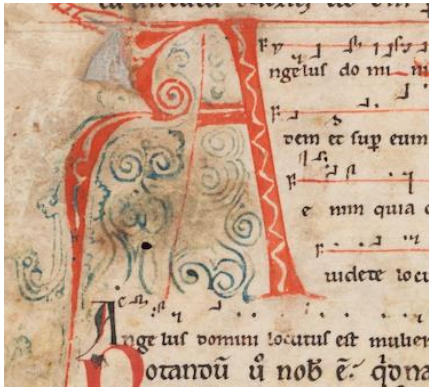 Angelus do mi ni
dem et sup eum
e nim quia
uidete locu
Ange lus domini locutus est mulier
Potandū nob ē